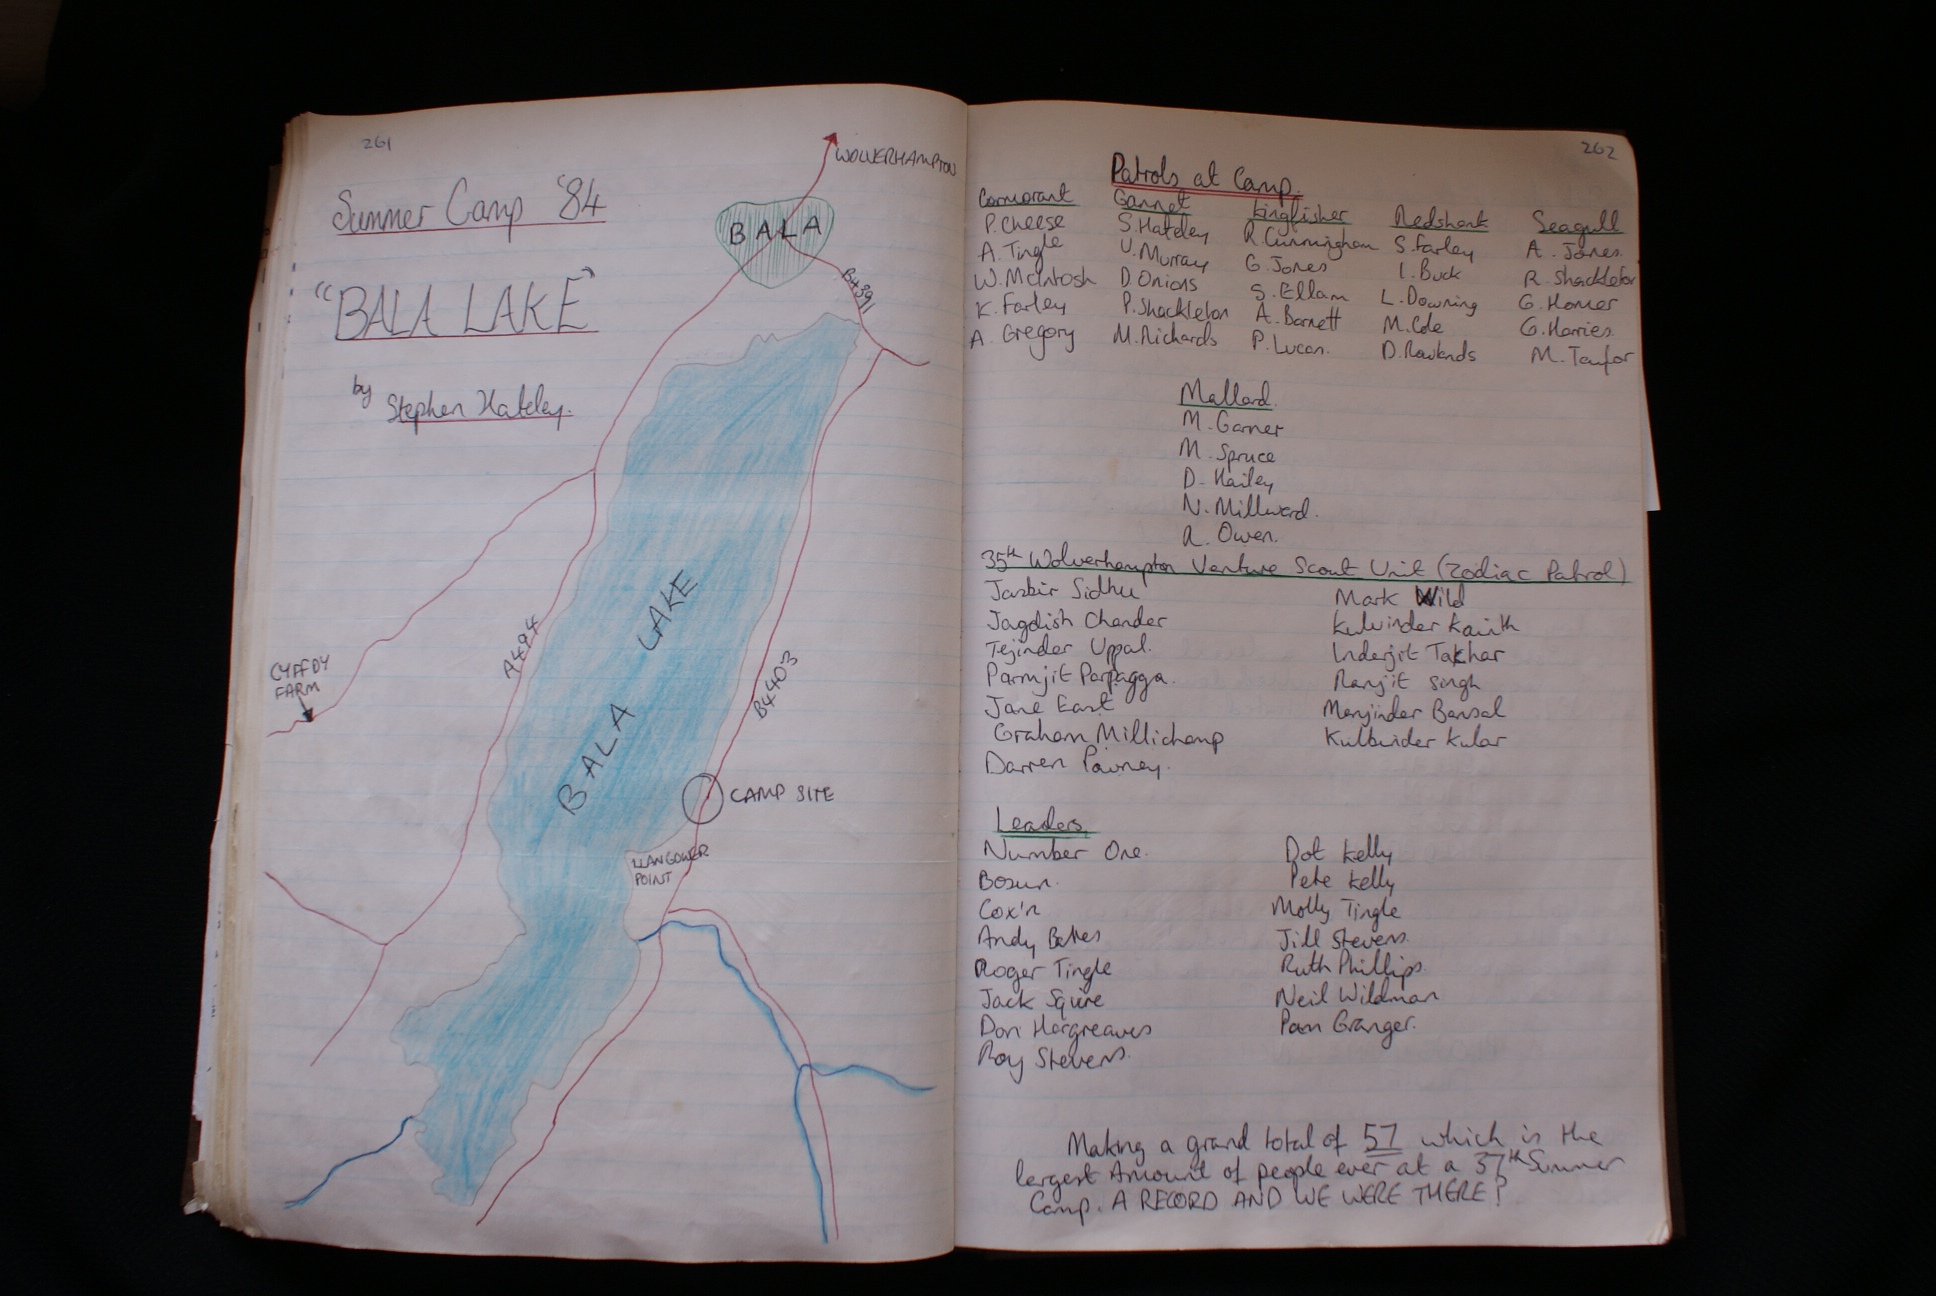 261
Summer Camp '84
"BALA LAKE"
by
Stephen Hateley.
WOLVERHAMPTON
BALA
B4391
A494
BALA LAKE
B4403
CYFFDY
FARM
CAMP SITE
LLANGOWER
POINT
262
Patrols at Camp.
Cormorant Gannet Kingfisher Redshank Seagull
P. Cheese S. Hateley R. Cunningham S. Farley A. Jones.
A. Tingle V. Murray G. Jones I. Buck R. Shackleton
W. McIntosh D. Onions S. Ellam L. Downing G. Homer
K. Farley P. Shackleton A. Barnett M. Cole G. Harries.
A. Gregory M. Richards P. Lucan. D. Rowlands M. Taylor
Mallard.
M. Garner
M. Spruce
D. Hailey
N. Millward.
A. Owen.
35th Wolverhampton Venture Scout Unit (Zodiac Patrol)
Jasbir Sidhu Mark Wild
Jagdish Chander Kulvinder Kainth
Tejinder Uppal. Inderjit Takhar
Parmjit Parpagga. Ranjit Singh
Jane East Manjinder Bansal
Graham Millichamp Kulbinder Kular
Darren Pawney.
Leaders
Number One. Dot Kelly
Bosun. Pete Kelly
Cox'n Molly Tingle
Andy Bates Jill Stevens.
Roger Tingle Ruth Phillips.
Jack Squire Neil Wildman
Don Hargreaves Pam Granger.
Roy Stevens.
Making a grand total of 57 which is the
largest Amount of people ever at a 37th Summer
Camp. A RECORD AND WE WERE THERE!